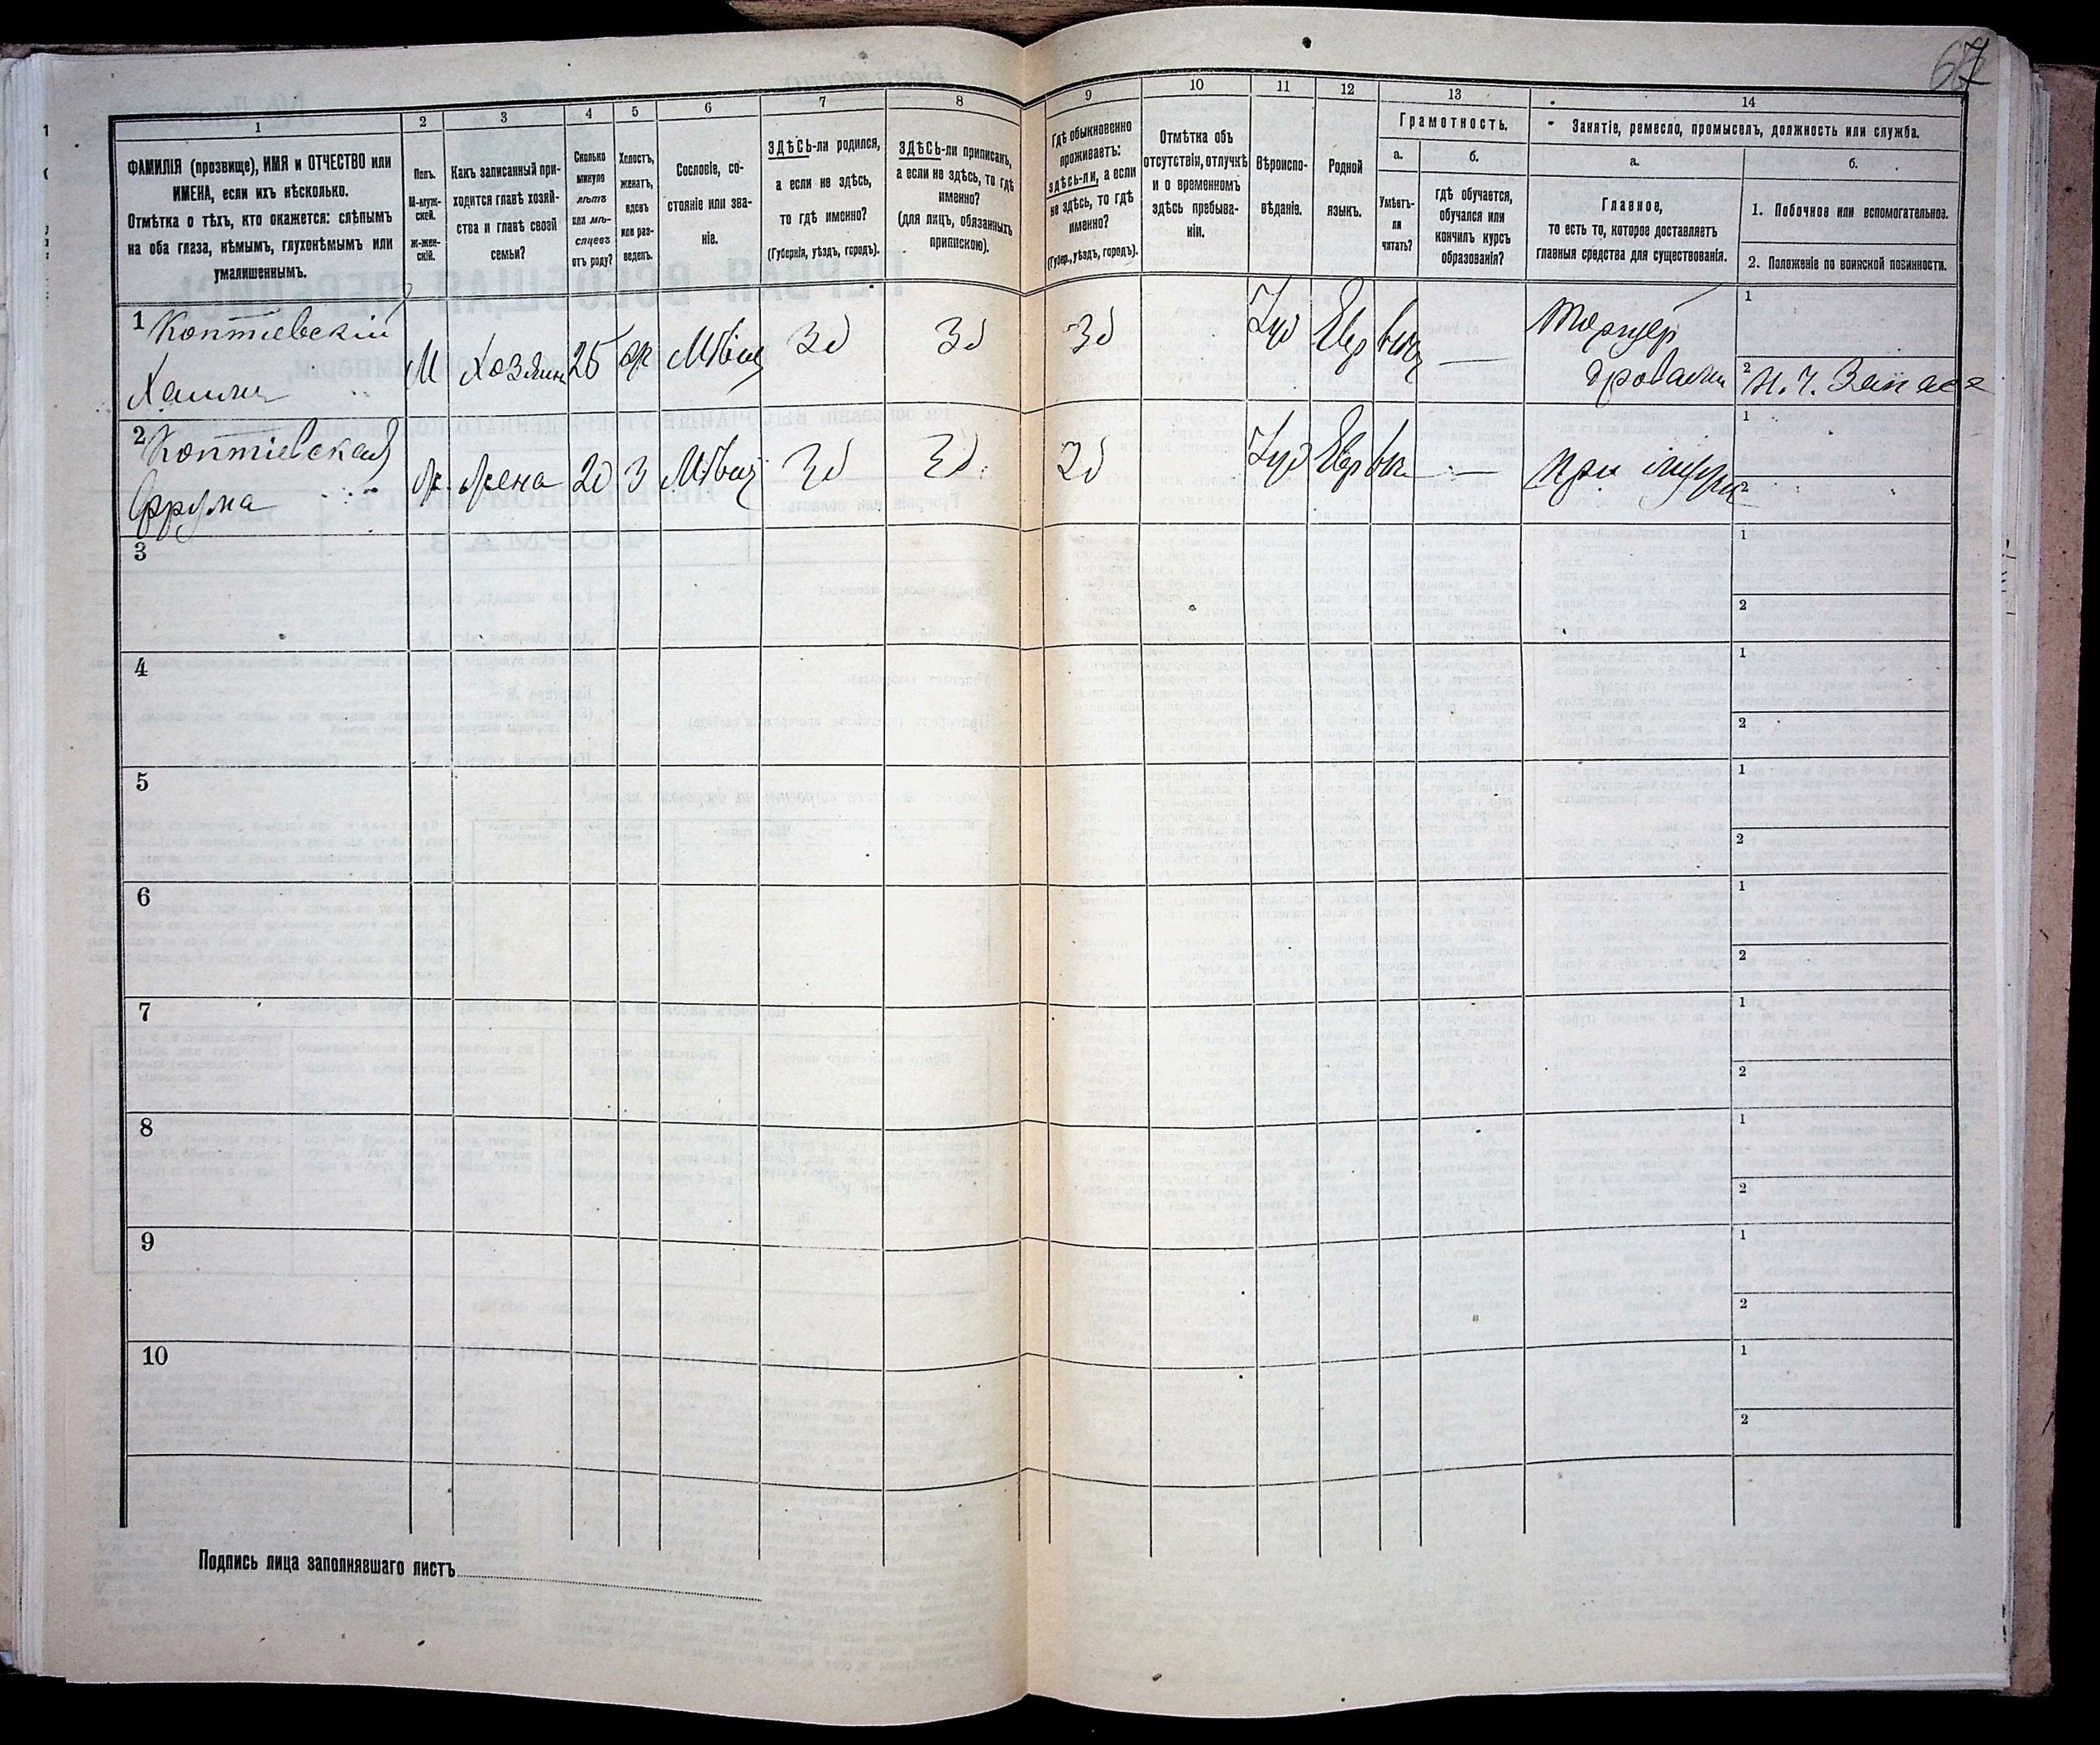 67
1 2 3 4 5 6 7 8 9 10 11 12 13 14
ФАМИЛІЯ (прозвище), ИМЯ и ОТЧЕСТВО или
ИМЕНА, если ихъ нѣсколько.
Отмѣтка о тѣхъ, кто окажется: слѣпымъ
на оба глаза, нѣмымъ, глухонѣмымъ или
умалишеннымъ.
Полъ.
М-муж-
ской.
ж-жен-
скій.
Какъ записанный при-
ходится главѣ хозяй-
ства и главѣ своей
семьи?
Сколько
минуло
лѣтъ
или мѣ-
сяцевъ
отъ роду?
Холостъ,
женатъ,
вдовъ
или раз-
веденъ.
Сословіе, со-
стояніе или зва-
ніе.
ЗДѢСЬ-ли родился,
а если не здѣсь,
то гдѣ именно?
(Губернія, уѣздъ, городъ).
ЗДѢСЬ-ли приписанъ,
а если не здѣсь, то гдѣ
именно?
(для лицъ, обязанныхъ
припискою).
Гдѣ обыкновенно
проживаетъ:
здѣсь-ли, а если
не здѣсь, то гдѣ
именно?
(Губер., уѣздъ, городъ).
Отмѣтка объ
отсутствіи, отлучкѣ
и о временномъ
здѣсь пребыва-
ніи.
Вѣроиспо-
вѣданіе.
Родной
языкъ.
Грамотность.
а.
Умѣетъ-
ли
читать?
б.
гдѣ обучается,
обучался или
кончилъ курсъ
образованія?
Занятіе, ремесло, промыселъ, должность или служба.
а.
Главное,
то есть то, которое доставляетъ
главныя средства для существованія.
б.
1. Побочное или вспомогательное.
2. Положеніе по воинской повинности.
1 Коптіевскій
М Хозяин 25 ж Мѣщ Зд Зд Зд Іуд Евр —
1
2 Н. Ч. Запаса
2 Коптіевская
Фрума
ж Жена 20 З Мѣщ Зд Зд Зд Іуд Евр — при мужѣ
1
2
3
1
2
4
1
2
5
1
2
6
1
2
7
1
2
8
1
2
9
1
2
10
1
2
Подпись лица заполнявшаго листъ